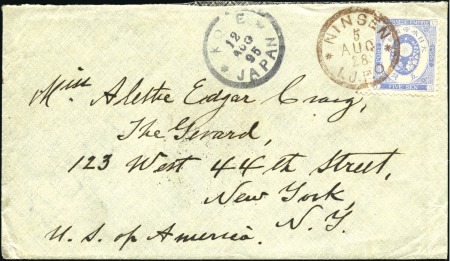 KOBE
12
AUG
95
JAPAN
NINSEN
5
AUG
28
I.J.P.O
FIVE SEN
Miss Alette Edgar Craig,
The Gerard,
123 West 44th Street,
New York,
N.Y.
U.S. of America.